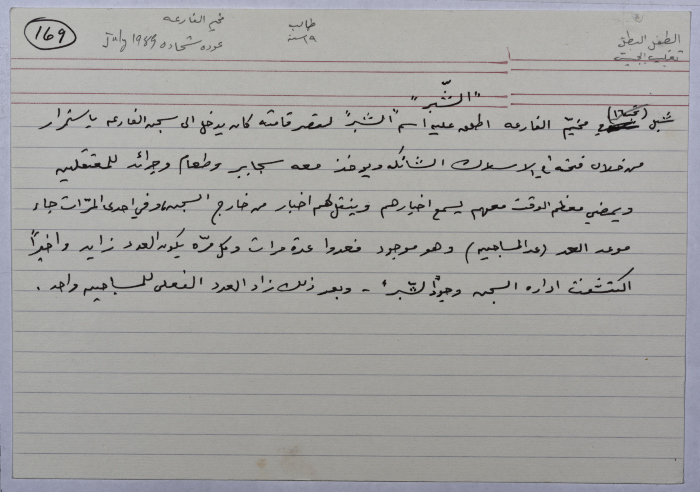 169
مخيم الفارعه
عوده شحاده July 1989
طالب
١٩ سنه
الطفل البطل
"الشّبر"
شبل (١٦ سنة) مخيّم الفارعه اطلق عليه اسم "الشبر" لقصر قامته كان يدخل الى سجن الفارعه باستمرار
من خلال فتحة في الاسلاك الشائكه ويوخذ معه سجاير وطعام وجرائد للمعتقلين
ويمضي معظم الوقت معهم يسمع اخبارهم وينقل لهم اخبار من خارج السجن، وفي احدى المرّات جاء
موعد العدد (عد المساجين) وهو موجود فعدوا عدة مرات وكل مرّه يكون العدد زايد واخيراً
اكتشفت اداره السجن وجود "الشبر" - وبعد ذلك زاد العدد الفعلي للمساجين واحد .